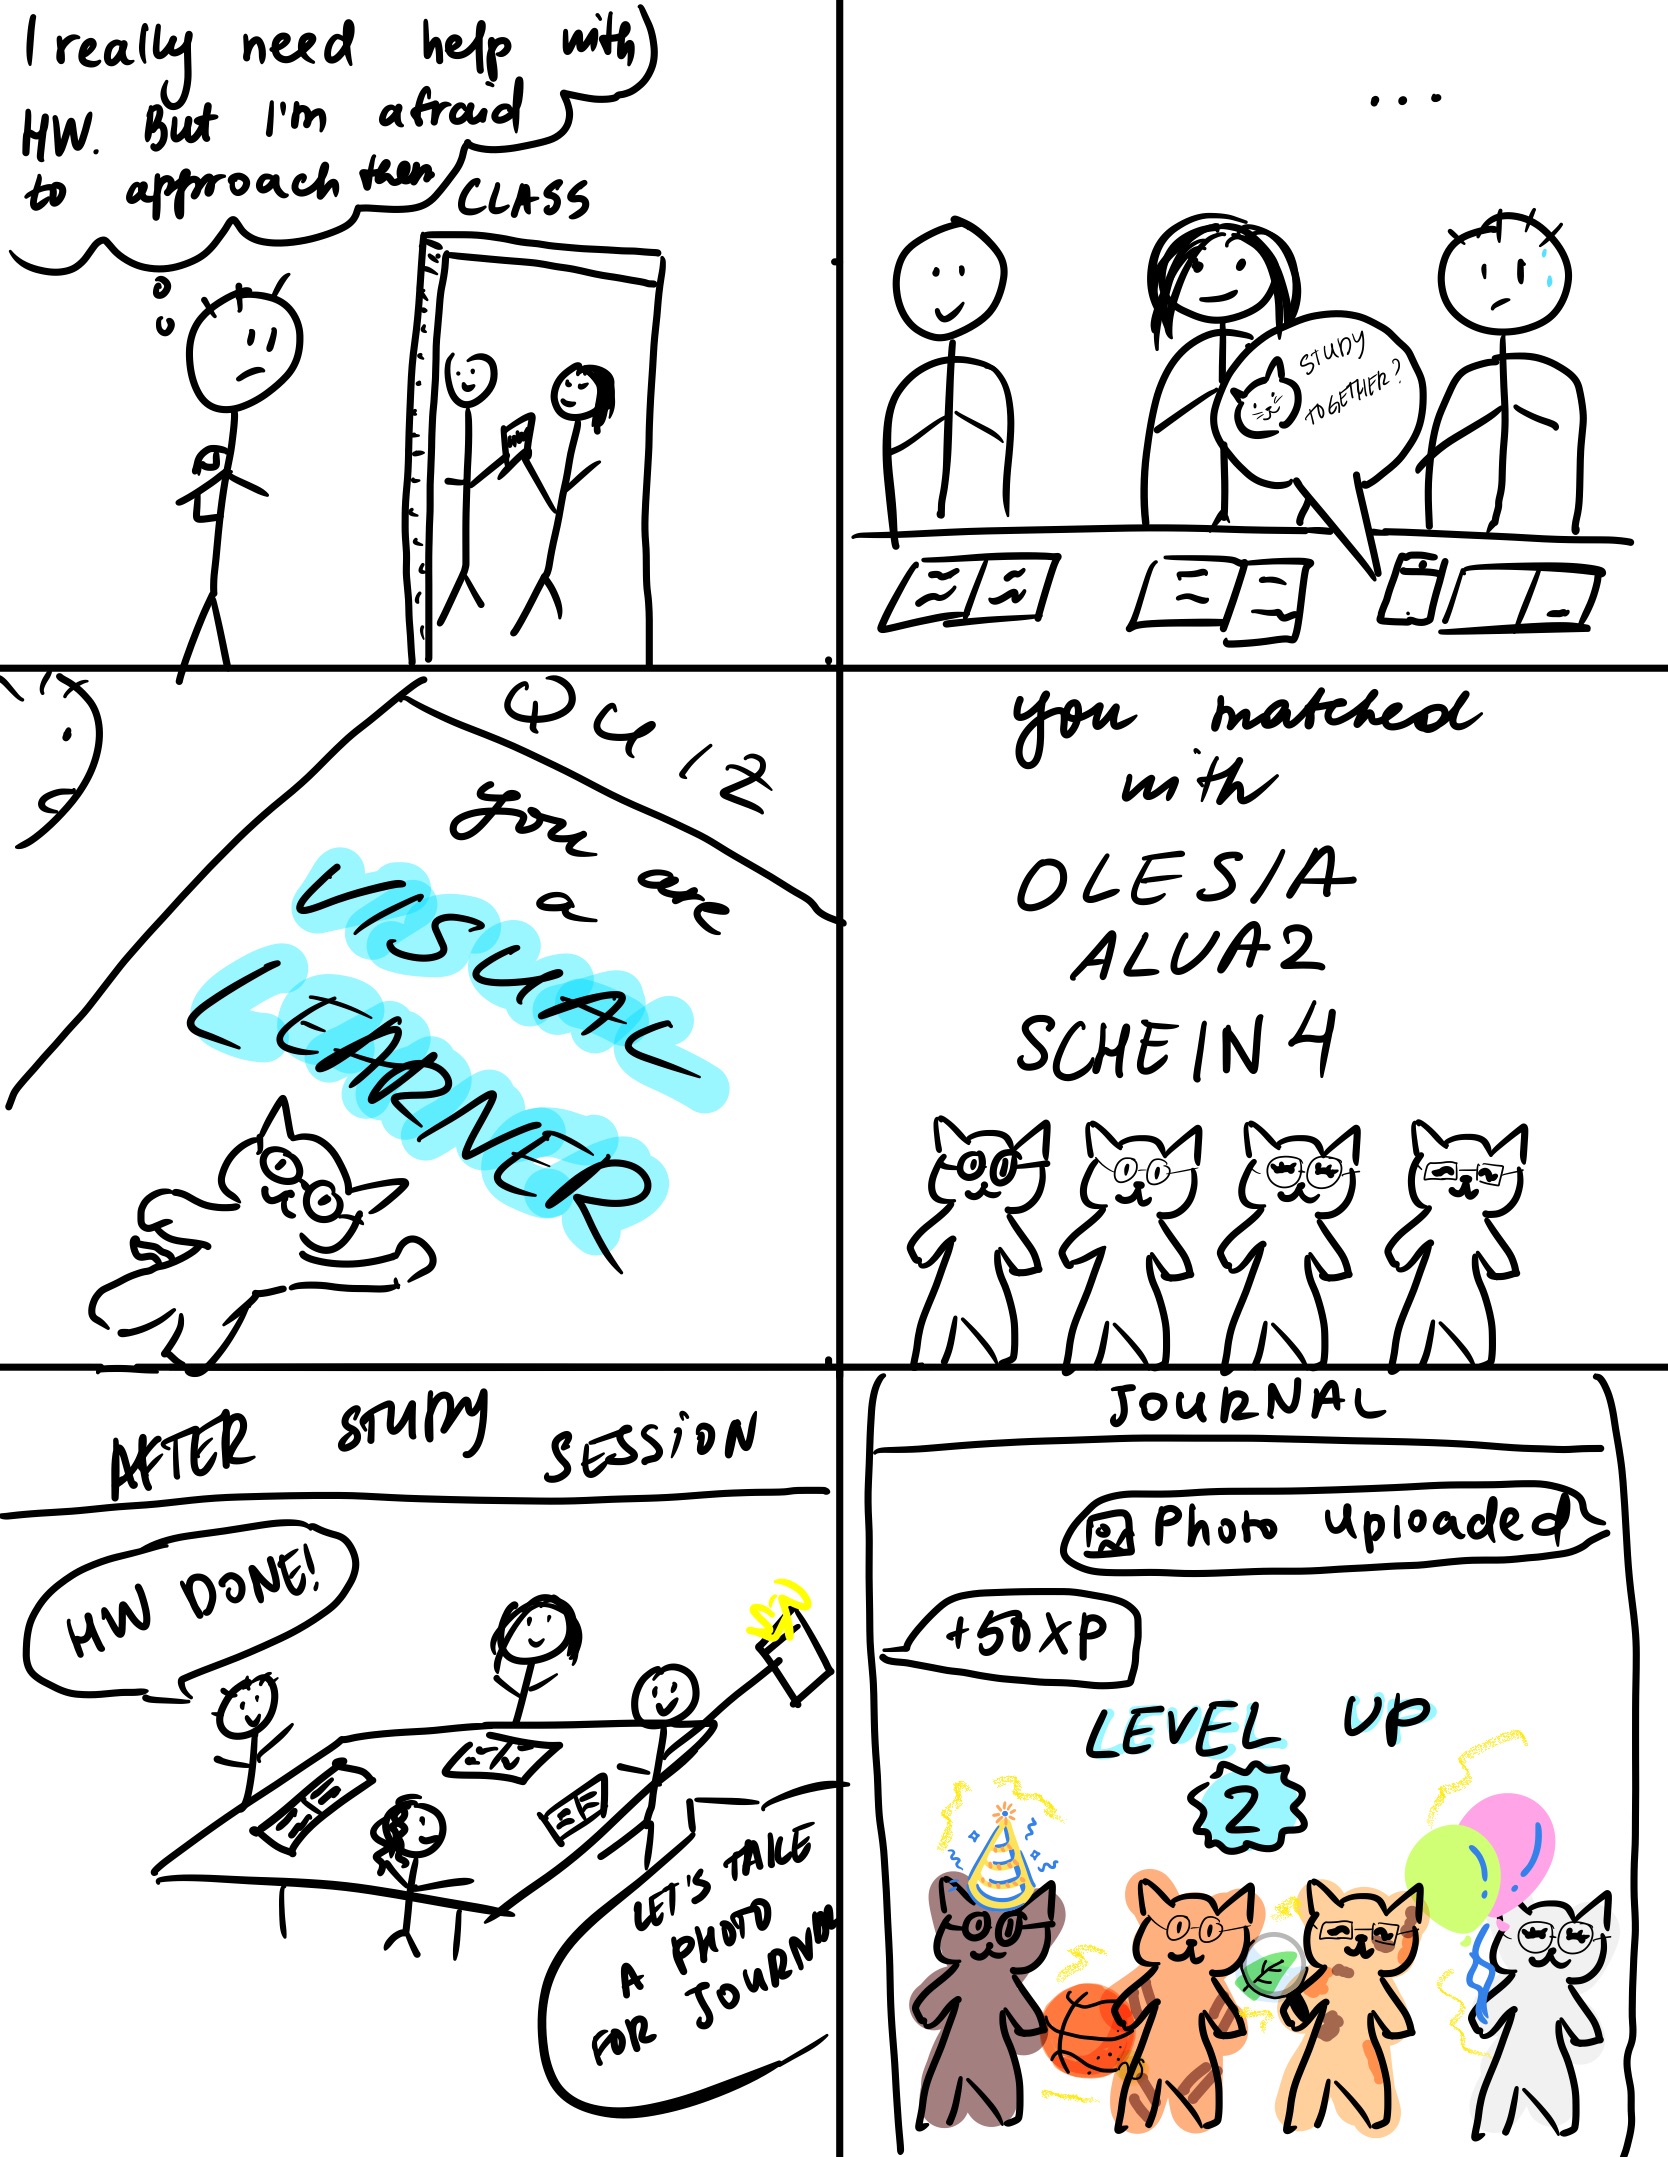 I really need help with
HW. But I'm afraid
to approach them
CLASS
...
STUDY
TOGETHER?
QUIZ
you are
a
VISUAL
LEARNER
you matched
with
OLESIA
ALUA2
SCHEIN4
AFTER STUDY SESSION
HW DONE!
LET'S TAKE
A PHOTO
FOR JOURNAL
JOURNAL
Photo uploaded
+50XP
LEVEL UP
2